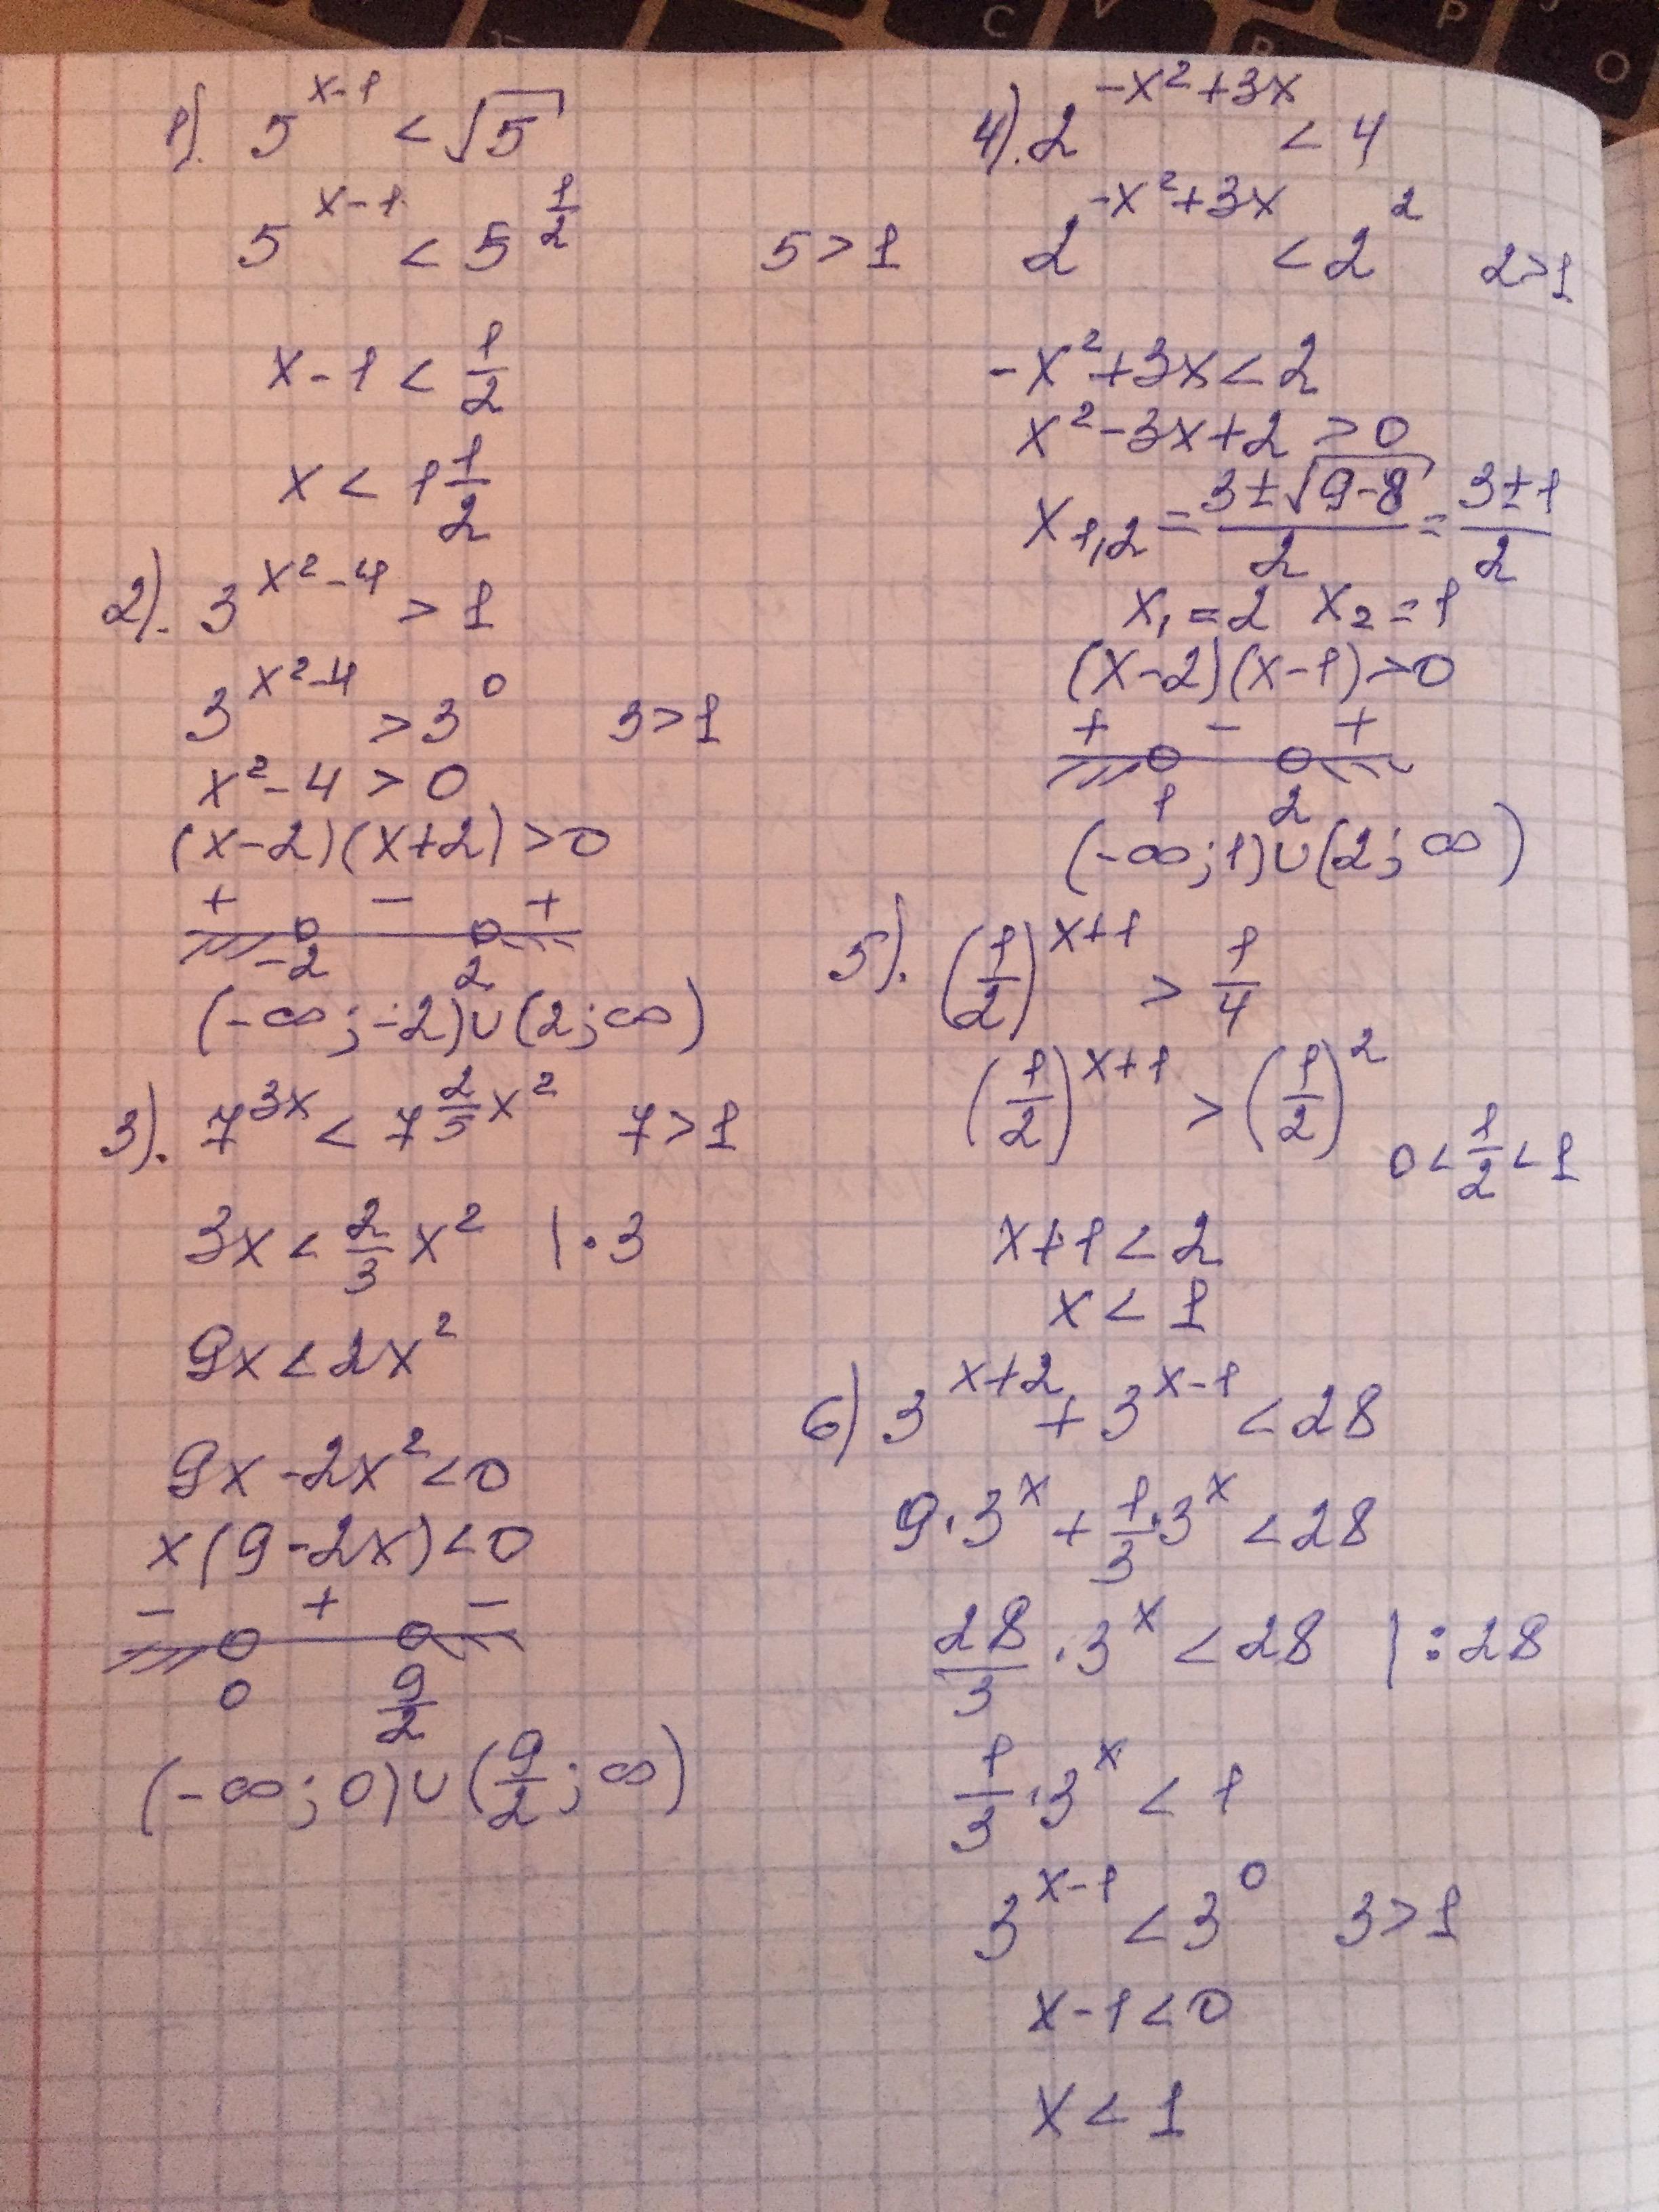 1). 5^(x-1) < √5
5^(x-1) < 5^(1/2)   5>1
x-1 < 1/2
x < 1 1/2
2). 3^(x²-4) > 1
3^(x²-4) > 3^0   3>1
x²-4 > 0
(x-2)(x+2)>0
+ - +
-2 2
(-∞;-2)∪(2;∞)
3). 7^(3x) < 7^(2/5 x²)   7>1
3x < 2/3 x² |·3
9x<2x²
9x-2x²<0
x(9-2x)<0
- + -
0 9/2
(-∞;0)∪(9/2;∞)
4). 2^(-x²+3x) < 4
2^(-x²+3x) < 2²   2>1
-x²+3x<2
x²-3x+2>0
x₁,₂ = (3±√(9-8))/2 = (3±1)/2
x₁=2 x₂=1
(x-2)(x-1)>0
+ - +
1 2
(-∞;1)∪(2;∞)
5). (1/2)^(x+1) > 1/4
(1/2)^(x+1) > (1/2)²   0<1/2<1
x+1<2
x<1
6) 3^(x+2)+3^(x-1)<28
9·3^x + 1/3·3^x <28
28/3·3^x <28 |:28
1/3·3^x < 1
3^(x-1) < 3^0   3>1
x-1<0
x<1
C
V
B
P
O